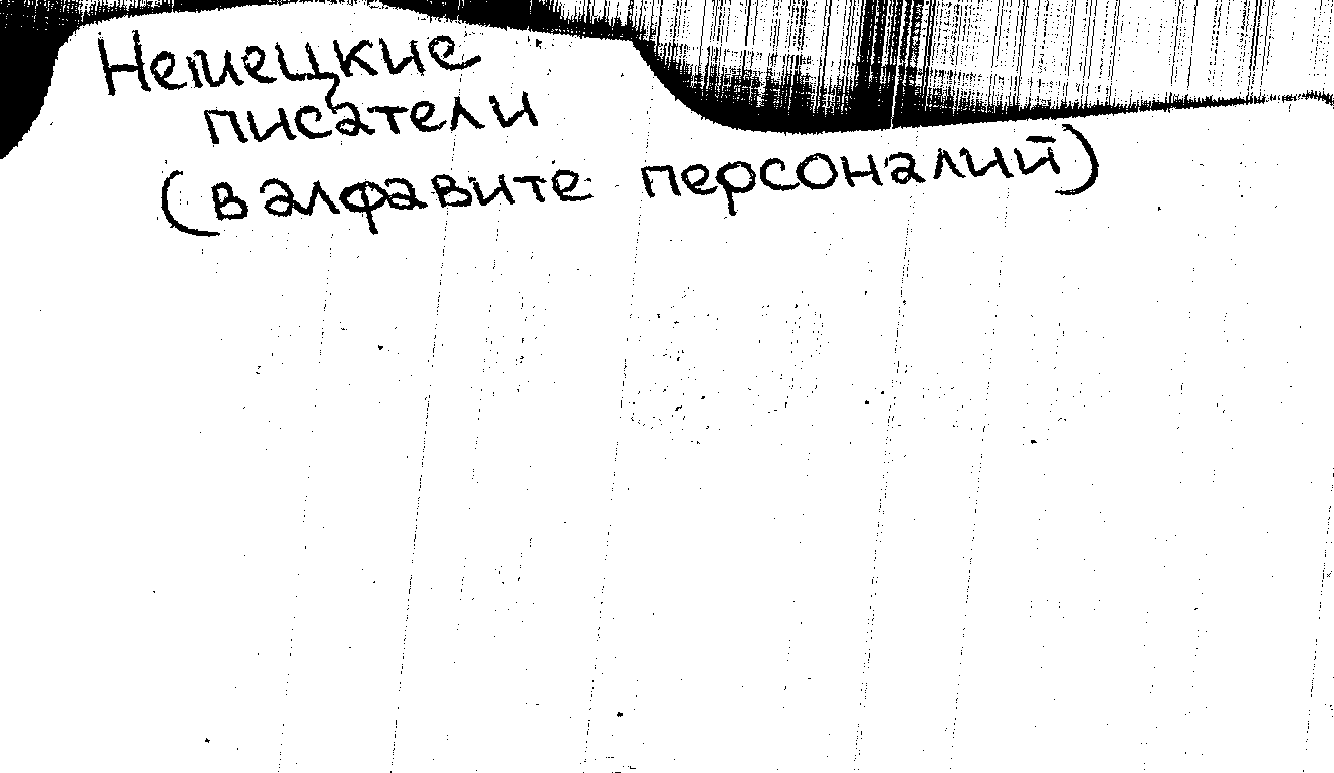 Немецкие
писатели
(в алфавите персоналий)